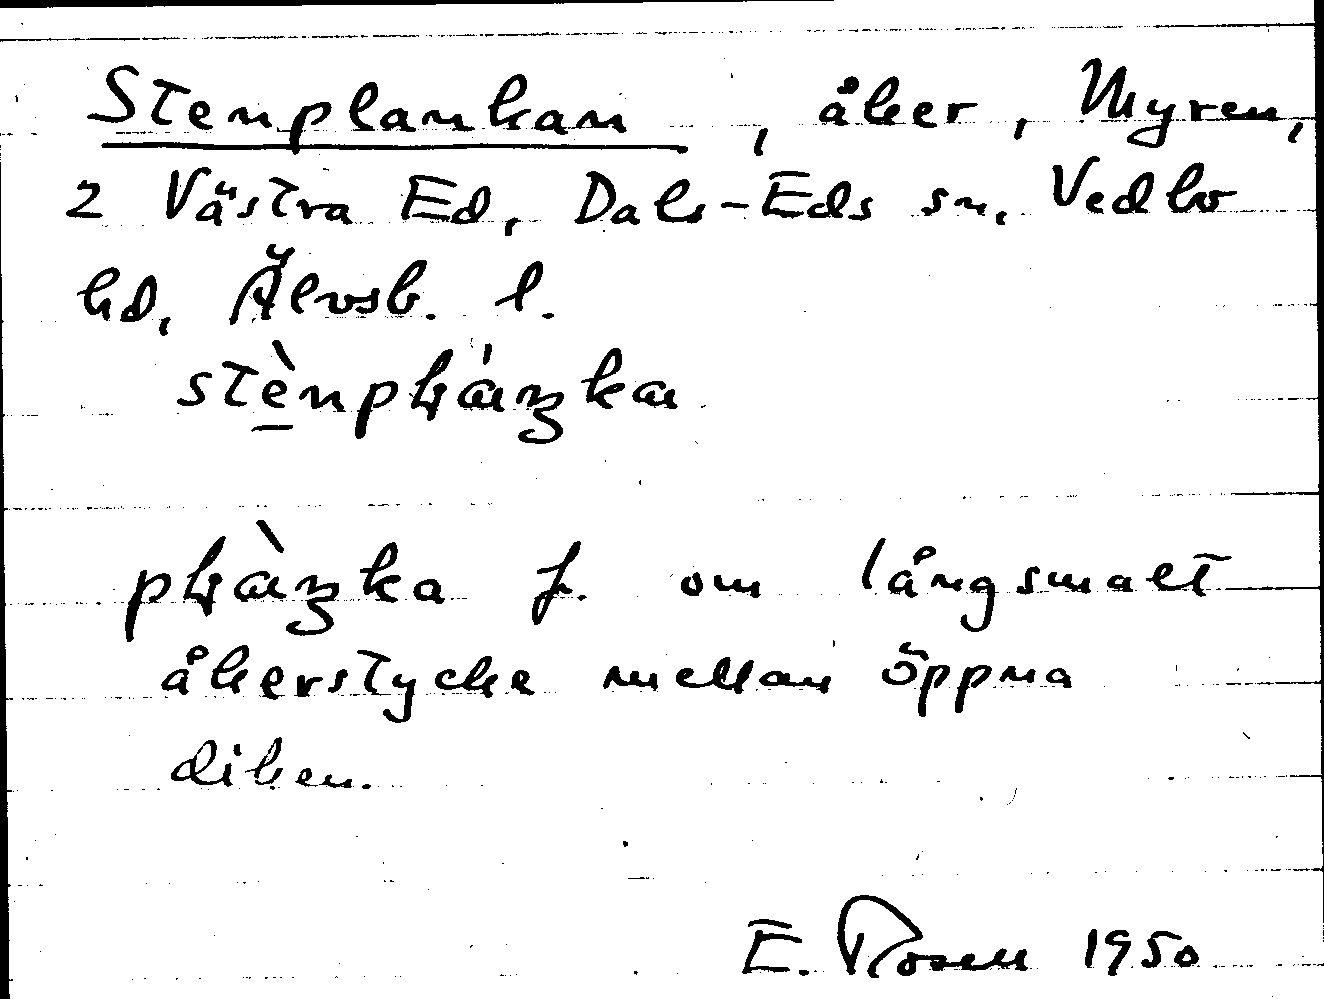 Stenplankan, åker, Myren,
2 Västra Ed, Dals-Eds sn, Vedbo
hd, Älvsb. l.
stènpɫáŋka
pɫàŋka f. om långsmalt
åkerstycke mellan öppna
diken.
E. Rosell 1950